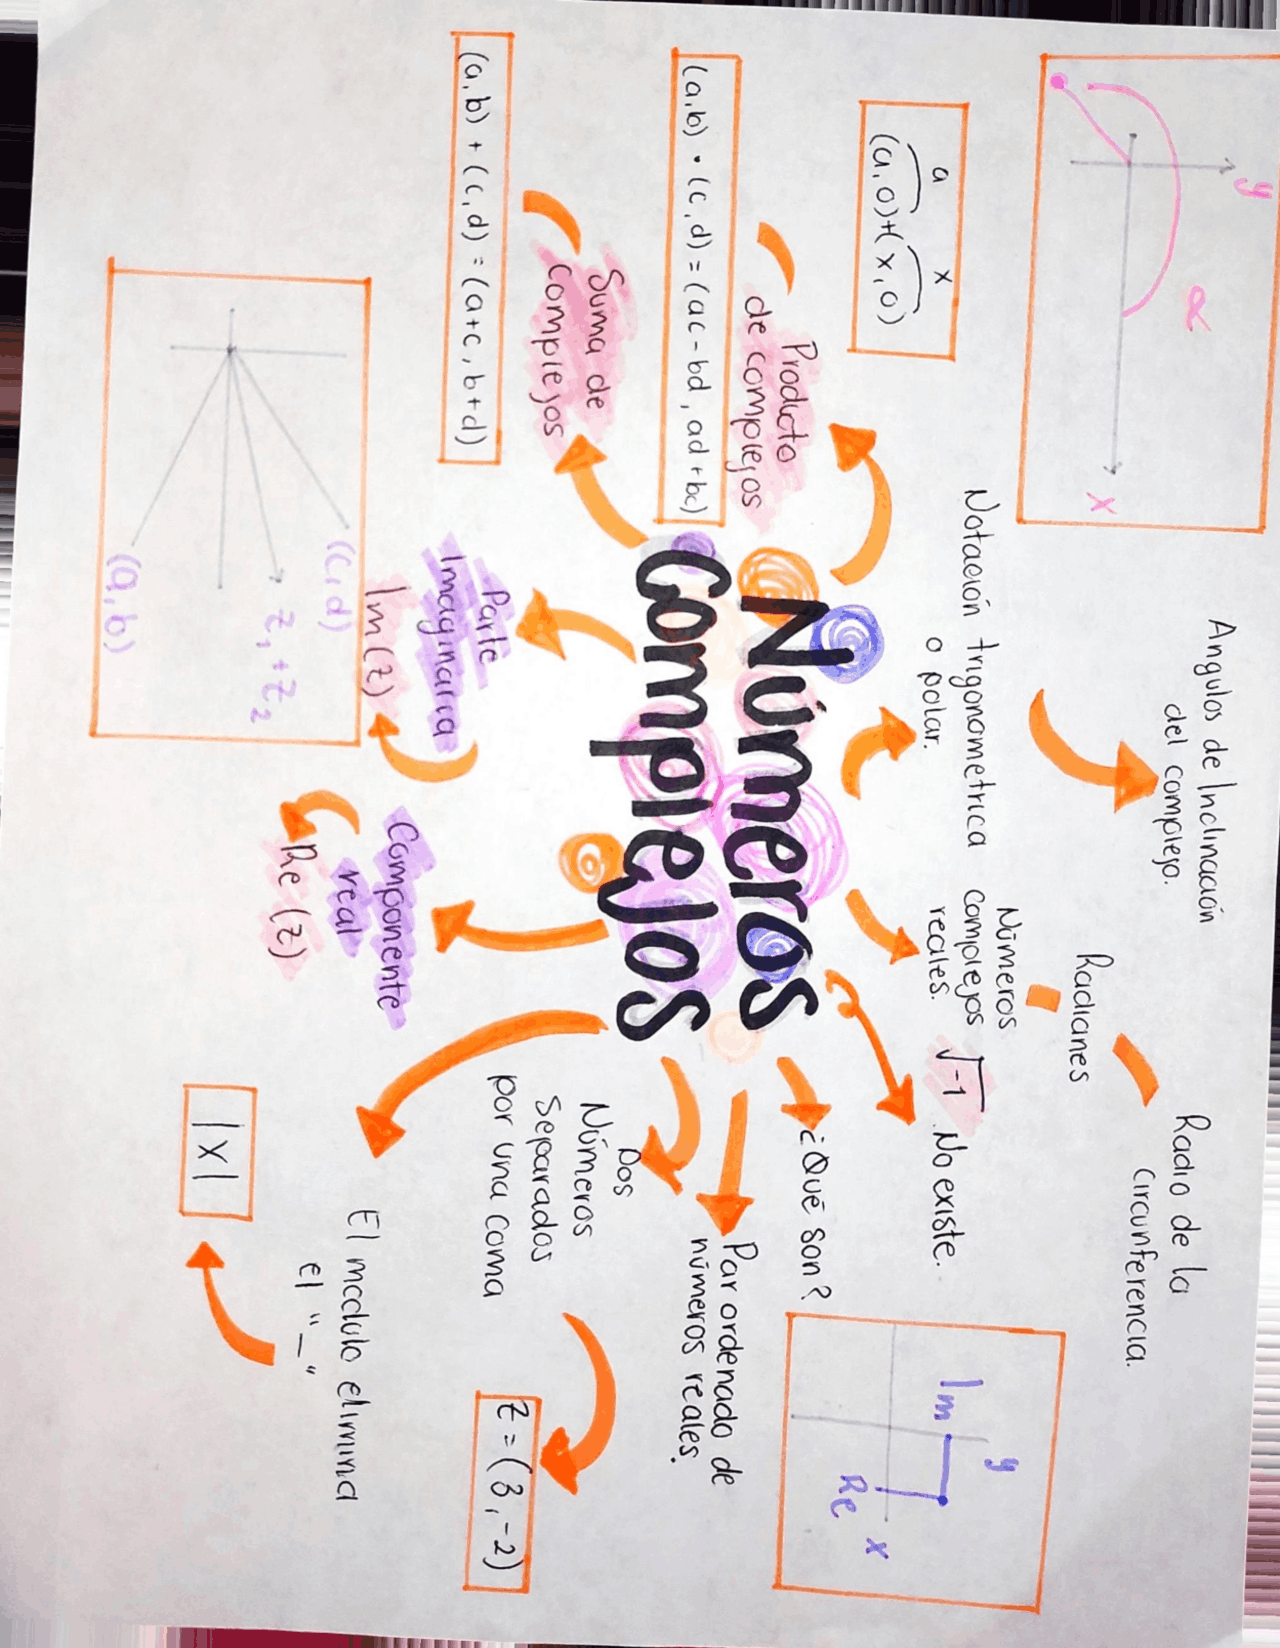 Números
Complejos
y
α
x
Angulos de Inclinación
del complejo.
Radianes
Radio de la
Circunferencia.
a x
(a, 0)+(x, 0)
Notación trigonometrica
o polar.
Números
complejos
reales.
√-1 No existe.
y
Im
Re
x
Producto
de complejos
(a,b) • (c,d) = (ac-bd, ad+bc)
¿Qué son?
Par ordenado de
números reales.
Suma de
Complejos
(a,b) + (c,d) = (a+c, b+d)
Dos
Números
Separados
por una coma
z = (3, -2)
Parte
Imaginaria
Im(z)
Componente
real
Re(z)
(c,d)
z₁+z₂
(a,b)
El modulo elimina
el "_"
|x|